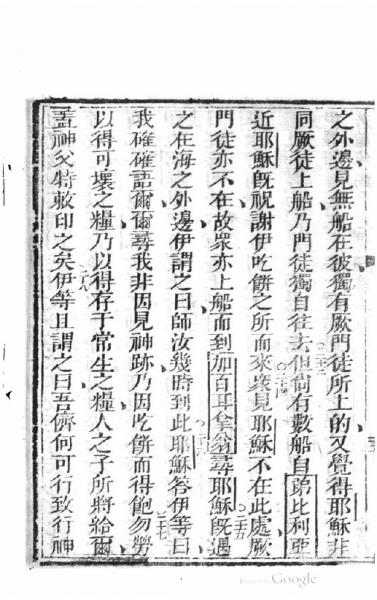 之外邊見無船在彼獨有厥門徒所上的又覺得耶穌非
同厥徒上船乃門徒獨自往去但尚有數船自弟比利亞
近耶穌旣祝謝伊吃餅之所而來衆見耶穌不在此處厥
門徒亦不在故衆亦上船而到加百耳拿翁尋耶穌旣遇
之在海之外邊伊謂之曰師汝幾時到此耶穌答伊等曰
我確確語爾爾尋我非因見神跡乃因吃餅而得飽勿勞
以得可壞之糧乃以得存于常生之糧人之子所將給爾
蓋神父特敕印之矣伊等且謂之曰吾儕何可行致行神
Google